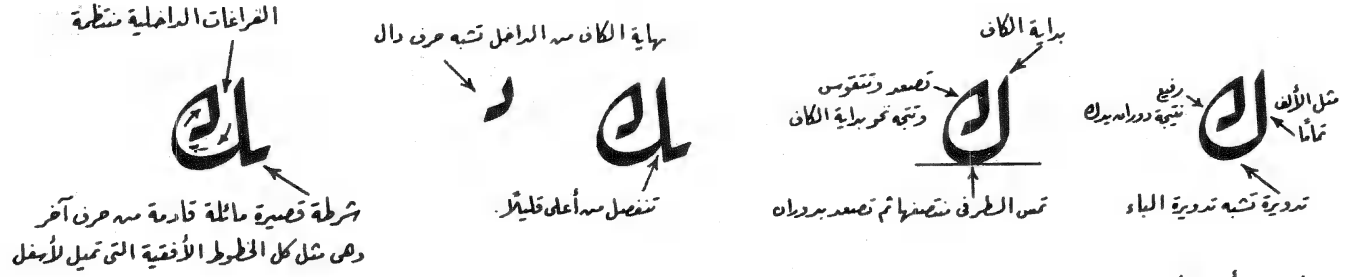 مثل الألف
تمامًا
رفيع
نتيجة دوران يدك
تدويرة تشبه تدويرة الباء
بداية الكاف
تصعد وتتقوس
وتتجه نحو بداية الكاف
تمس السطر فى منتصفها ثم تصعد بدوران
نهاية الكاف من الداخل تشبه حرف دال
تنفصل من أعلى قليلًا.
الفراغات الداخلية منتظمة
شرطة قصيرة مائلة قادمة من حرف آخر
وهى مثل كل الخطوط الأفقية التى تميل لأسفل